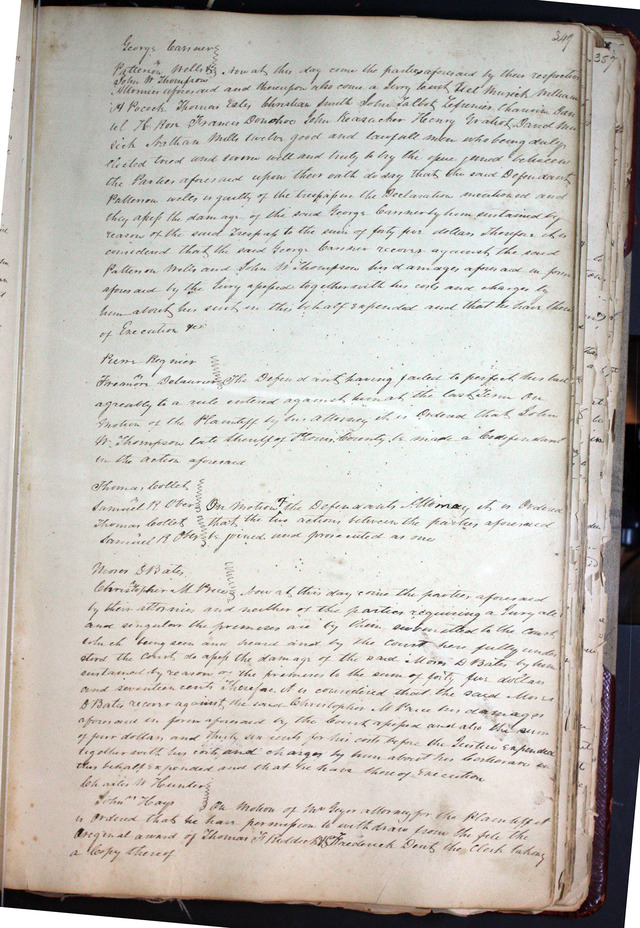 349
357
George Carsner
vs
Patterson Wells & Now at this day come the parties aforesaid by their respective
John W Thompson
Attornies aforesaid and thereupon also come a Jury to wit William
A Pocock Thomas Estes Christian Smith John Talbot Chauvin Dan
iel H Horn Francis Donohoe John Henry David Mu
sick Nathan Mills twelve good and lawfull men who being duly
elected tried and sworn well and truly to try the issue joined between
the Parties aforesaid upon their oath do say that the said Defendant
Patterson Wells is guilty of the trespass in the Declaration mentioned and
they assess the damage of the said George Carsner by him sustained by
reason of the said Trespass to the sum of forty five dollars Therefore it is
considered that the said George Carsner recover against the said
Patterson Wells and John W Thompson his damages aforesaid in form
aforesaid by the Jury assessed together with his costs and charges by
him about his suit in this behalf expended and that he have there
of Execution &c
Regnier
vs
Delaurier The Defendant having failed to perfect his bail
agreably to a rule entered against him at the last Term On
motion of the Plaintiff by his Attorney it is Ordered that John
W Thompson late Sheriff of County be made a Codefendant
in the action aforesaid
Thomas
vs
Samuel R Ober On Motion of the Defendants Attorney it is Ordered
Thomas that the two actions between the parties aforesaid
vs
Samuel R Ober be joined and prosecuted as one
Moses D Bates
vs
Christopher M Price Now at this day come the parties aforesaid
by their attornies and neither of the parties requiring a Jury all
and singular the premises are by them submitted to the Court
which being seen and heard and by the court here fully under
stood the Court do assess the damage of the said Moses D Bates by him
sustained by reason of the premises to the sum of forty five dollars
and seventeen cents Therefore it is considered that the said Moses
D Bates recover against the said Christopher M Price his damages
aforesaid in form aforesaid by the Court assessed and also the sum
of four dollars and thirty six cents for his costs before the Justice expended
together with his costs and charges by him about his in
this behalf expended and that he have thereof Execution
Charles W Hunter
vs
John Hays On Motion of Mr Geyer attorney for the Plaintiff it
is Ordered that he have permission to withdraw from the file the
Original award of Thomas F Riddick & Frederick Dent the Clerk taking
a Copy thereof